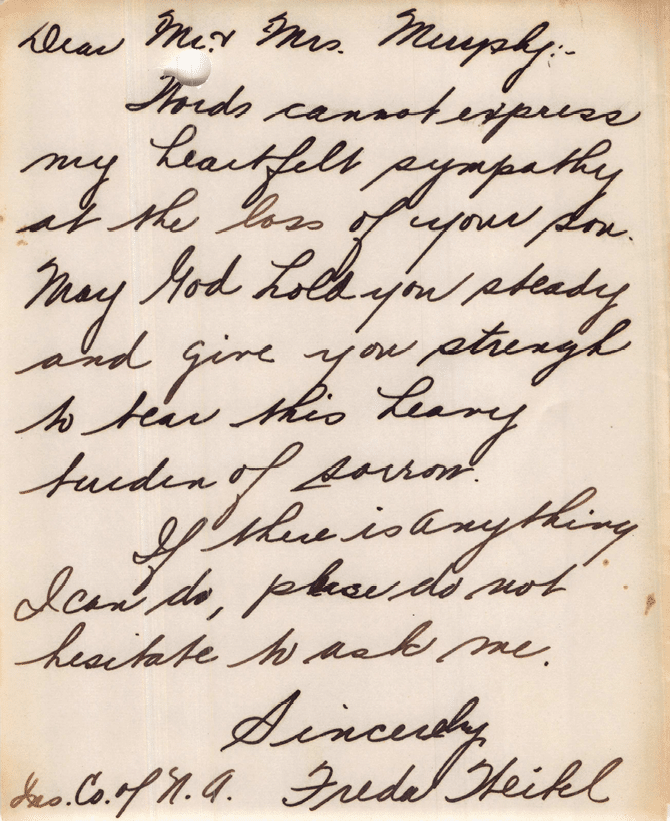 Dear Mr. & Mrs. Murphy:-
Words cannot express
my heartfelt sympathy
at the loss of your son.
May God hold you steady
and give you strengh
to bear this heavy
burden of sorrow.
If there is anything
I can do, please do not
hesitate to ask me.
Sincerely
Ins. Co. of N. A. Freda Heibel